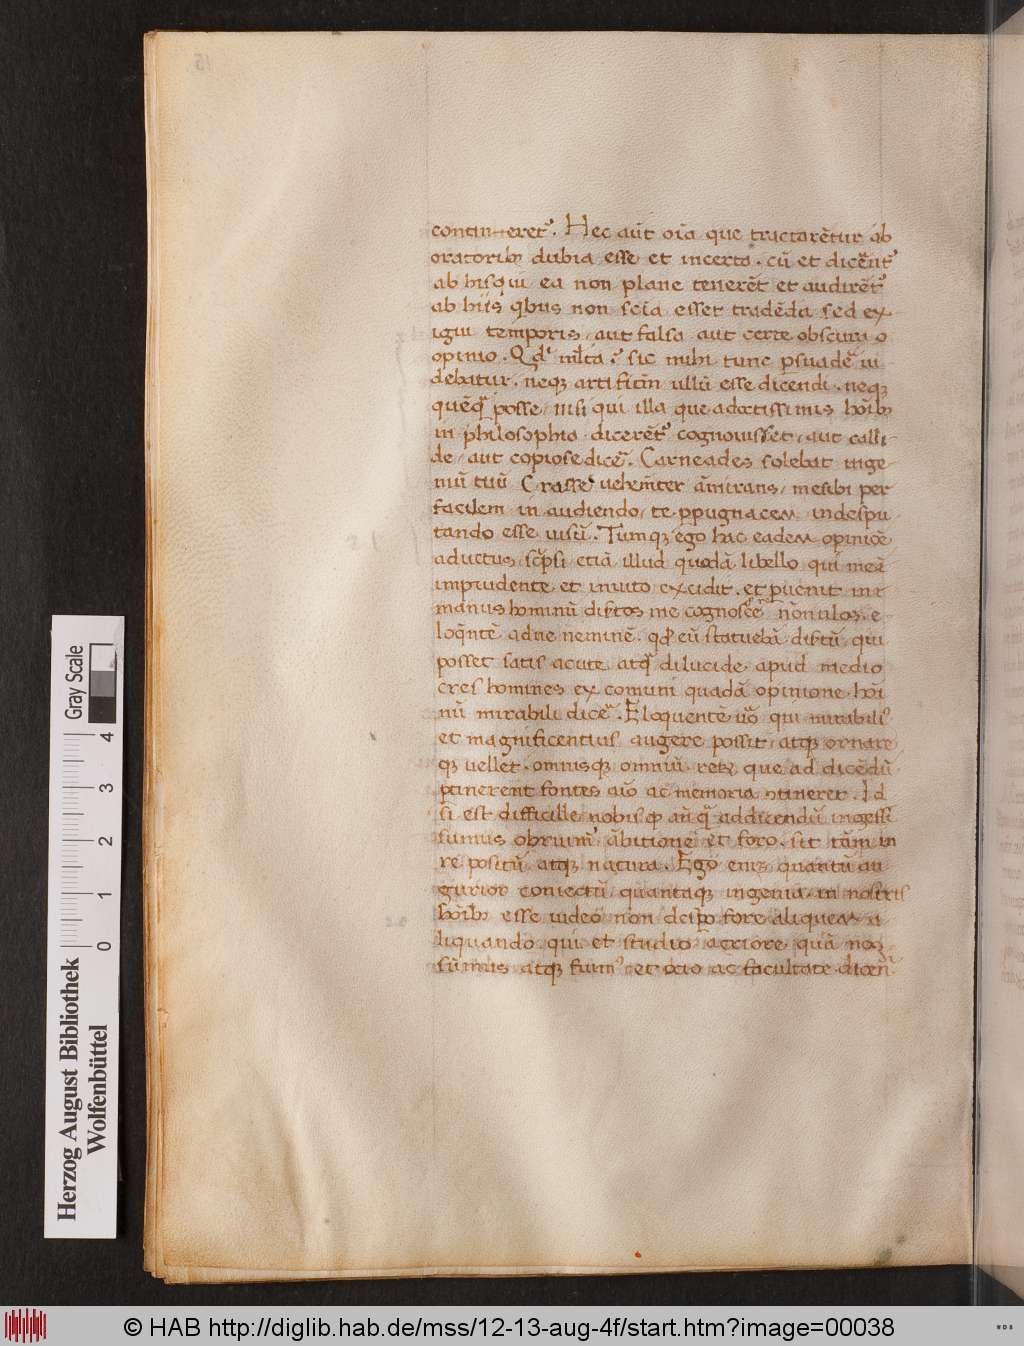 contineret᷒. Hec aūt oīa que tractarētur ab
oratorib; dubia esse et incerta. cū et dicērēt᷒
ab his qui ea non plane tenerēt et audirēt᷒
ab hiis qbus non sc̄ia esset tradēda sed ex-
igui temporis, aut falsa aut certe obscura o
opinio. sic mihi tunc psuade ui
debatur. neq; artificiū ullū esse dicendi. neq;
quēq̄ posse, nisi qui illa que a doctissimis hoīb;
in philosophia dicerēt᷒ cognouisset, aut calli-
de, aut copiose dicē. Carneades solebat inge
niū tuū Crasse uehemēter āmirans, me sibi per
facilem in audiendo, te ppugnacem in despu
tando esse uisū. Tumq; ego hac eadem opiniōe
aductus, sc̄psi etiā illud quodā libello qui me ā
imprudente et inuito excidit. et puenit in
manus hominū disertos me cognoscē nōnulos. e
loqntē adne neminē. qd eū statuebā disertū, qui
posset satis acute atq̄ dilucide apud medio
cres homines ex comuni quadā opinione hoī
nū mirabili dicē. Eloquentē uō qui mirabili᷒
et magnificentius augere possit, atq; ornare
q; uellet. omnisq; omniū reꝝ que ad dicēdū
ptinerent fontes aīo ac memoria ꝯtineret. Id
si est difficille nobis q̄ an̄q̄ ad dicendū ingessi
sumus obruim᷒ ābitione et foro. sit tām in
re positū atq; natura. Ego enī quantū au
guror coniectū, quantaq; ingenia in nostris
hoīb; esse uideo non despo fore aliquem a
liquando qui et studio acriore quā nos
sūmus atq; fuim᷒ et ocio ac facultate dicen
Herzog August Bibliothek
Wolfenbüttel
Gray Scale
0 1 2 3 4
© HAB http://diglib.hab.de/mss/12-13-aug-4f/start.htm?image=00038